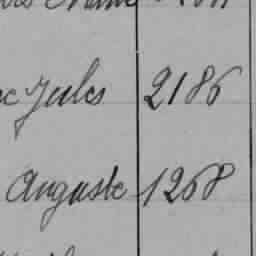 Jules 2186
Auguste 1268